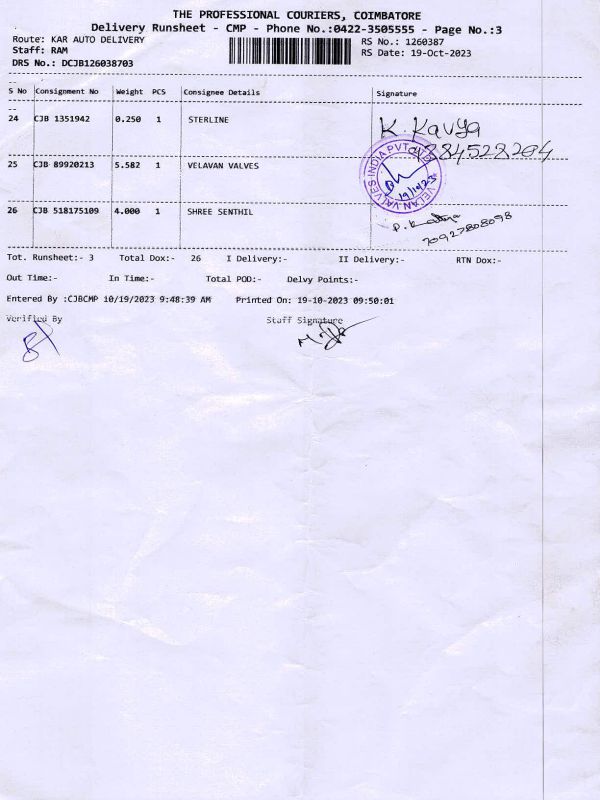 THE PROFESSIONAL COURIERS, COIMBATORE
Delivery Runsheet - CMP - Phone No.:0422-3505555 - Page No.:3
Route: KAR AUTO DELIVERY RS No.: 1260387
Staff: RAM RS Date: 19-Oct-2023
DRS No.: DCJB126038703
S No Consignment No Weight PCS Consignee Details Signature
24 CJB 1351942 0.250 1 STERLINE K. Kavya
25 CJB 89920213 5.582 1 VELAVAN VALVES
VELAN VALVES INDIA PVT LTD
19/10/23
26 CJB 518175109 4.000 1 SHREE SENTHIL
70927808098
Tot. Runsheet:- 3 Total Dox:- 26 I Delivery:- II Delivery:- RTN Dox:-
Out Time:- In Time:- Total POD:- Delvy Points:-
Entered By :CJBCMP 10/19/2023 9:48:39 AM Printed On: 19-10-2023 09:50:01
Verified By Staff Signature